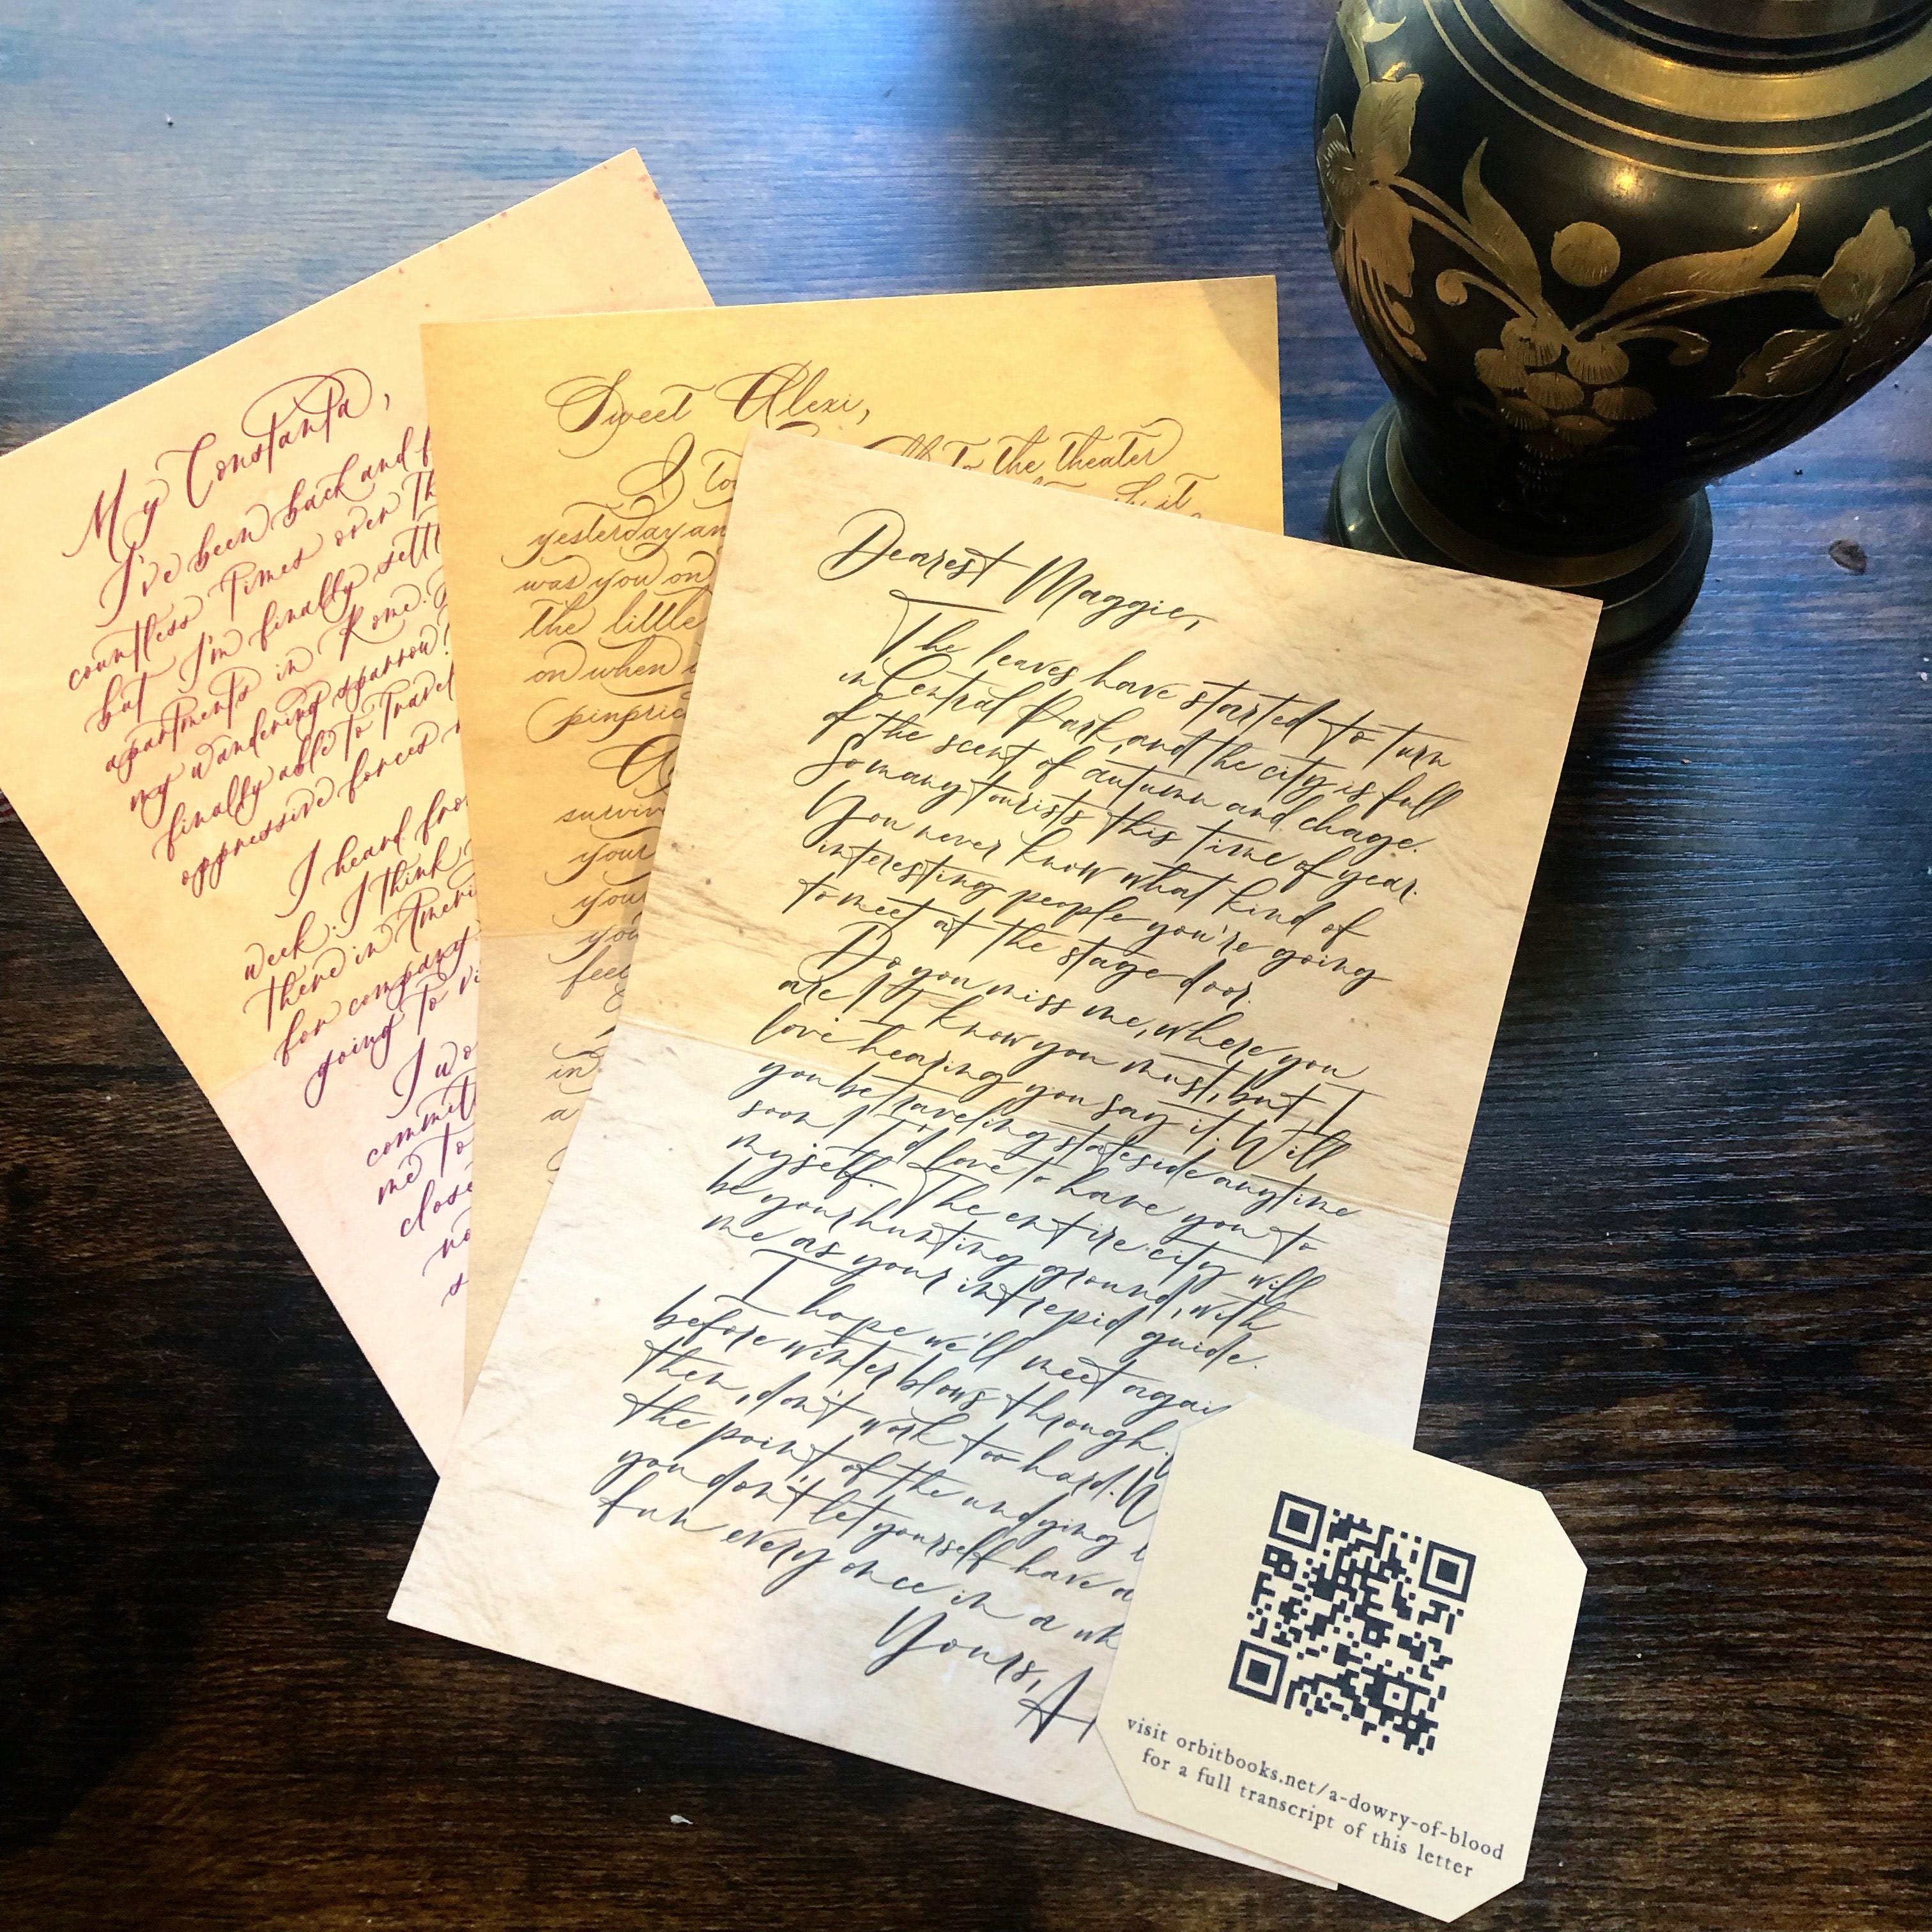 My Constanta,
I've been back and f
countless times over th
but I'm finally settl
apartments in Rome.
my wandering sparrow!
finally able to travel
oppressive forces
I heard fro
week. I think
there in Ameri
for company
going to vi
I wo
commit
me to
close
no
Sweet Alexi,
I to to the theater
yesterday an it
was you on
the little
on when
(pinpric
surviv
your
you
you
feel
in
a
Dearest Maggie,
The leaves have started to turn
in Central Park, and the city is full
of the scent of autumn and chage.
So many tourists this time of year.
You never know what kind of
interesting people you're going
to meet at the stage door.
Do you miss me, where you
are? I know you must, but I
love hearing you say it. Will
you be traveling stateside anytime
soon? I'd love to have you to
myself. The entire city will
be your hunting ground, with
me as your intrepid guide.
I hope we'll meet agai
before winter blows through.
then, don't work too hard. W
the point of the undying
you don't let yourself have a
fun every once in a wh
Yours,
A
visit orbitbooks.net/a-dowry-of-blood
for a full transcript of this letter